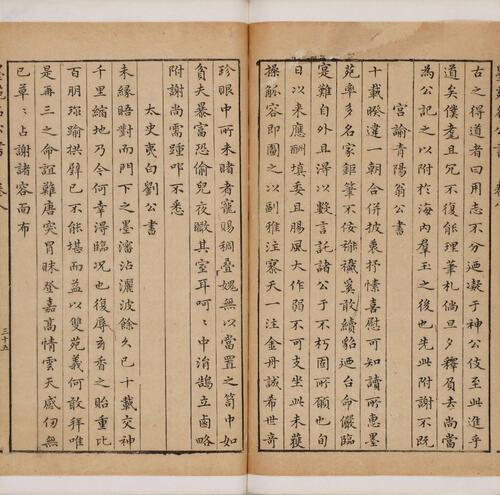 古之道者曰用志不分迺凝于神公伎至此進乎
道矣僕耄且冗不復能理筆札倘旦夕釋負去尚當
為公記之以附於海內羣玉之後也先此附謝不既
宮諭青陽翁公書
十載暌違一朝合併披裘抒愫喜慰可知讀所惠墨
苑率多名家鉅筆不佞雖襪
奚敢續貂迺台命嚴臨
寔難自外且淂以數言託諸公于不朽固所願也自
日以來應酬填委且腸風大作弱不可支坐此未獲
操觚容即圖之以副雅注寮天一注金丹誠希世奇
珍眼中所未睹者寵賜稠疊媿無以當置之笥中如
貧夫暴富恐偷兒夜瞰其室耳呵〻中涓鵠立鹵略
附謝尚需踵叩不悉
太史衷白劉公書
未緣晤對而門下之墨瀋沾灑波餘久已十載交神
千里縮地乃今何幸淂臨况也復辱玄香之貽重比
百朋珎踰拱璧已不能堪而益以雙苑義何敢拜唯
是再三之命誼難唐突冒昧登嘉高情雲天感仞無
已草〻占謝諸容面布
卷八
三十五